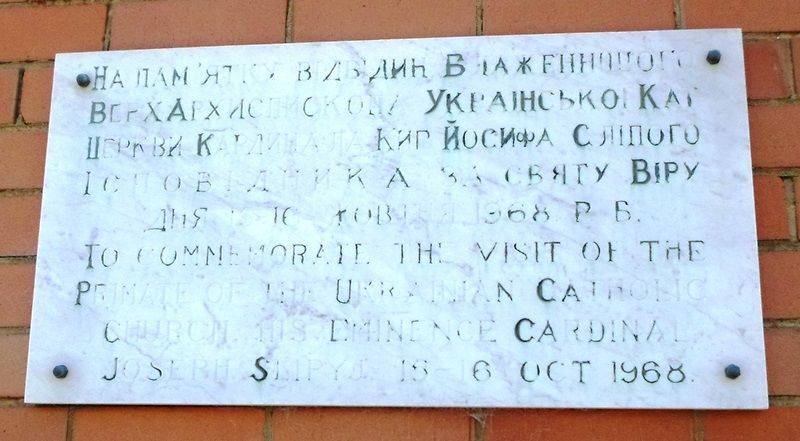 НА ПАМ'ЯТКУ ВІДВІДИН БЛАЖЕННІШОГО
ВЕРХАРХИЄПИСКОПА УКРАЇНСЬКОЇ КАТ
ЦЕРКВИ КАРДИНАЛА КИР ЙОСИФА СЛІПОГО
ІСПОВІДНИКА ЗА СВЯТУ ВІРУ
ДНЯ 15-16 ЖОВТНЯ 1968 Р. Б.
TO COMMEMORATE THE VISIT OF THE
PRIMATE OF THE UKRAINIAN CATHOLIC
CHURCH, HIS EMINENCE CARDINAL
JOSEPH SLIPYJ. 15-16 OCT 1968.